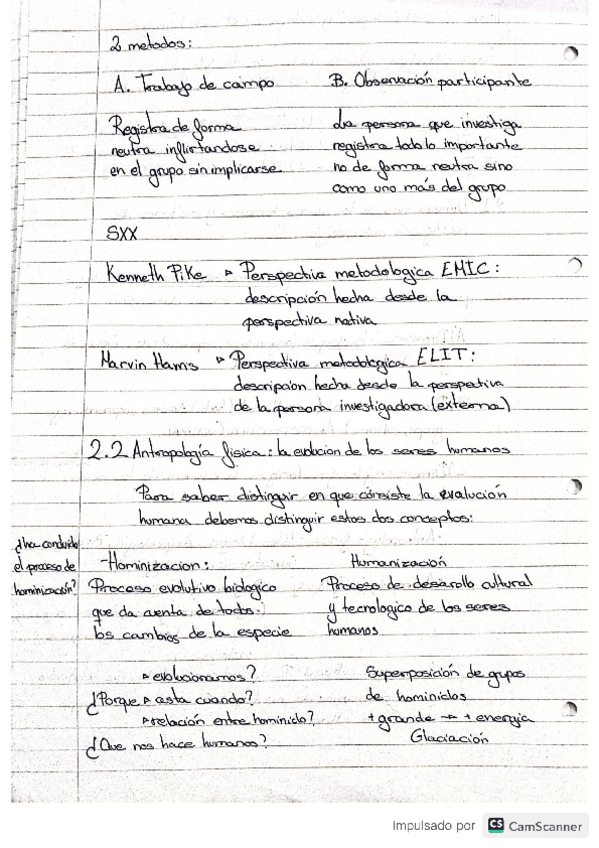 2 metodos:
A. Trabajo de campo
B. Observación participante
Registra de forma
neutra inflirtandose
en el grupo sin implicarse
La persona que investiga
registra todo lo importante
no de forma neutra sino
como uno más del grupo
SXX
Kenneth Pike ▹ Perspectiva metodologica EMIC:
descripción hecha desde la
perspectiva nativa
Marvin Harris ▹ Perspectiva metodologica ELIT:
descripcion hecha desde la perspectiva
de la persona investigadora (externa)
2.2 Antropología fisica: la evolucion de los seres humanos
Para saber distinguir en que consiste la evalución
humana debemos distinguir estos dos conceptos:
¿ha conduido
el proceso de
hominización?
-Hominizacion:
Proceso evolutivo biologico
que da cuenta de todos
los cambios de la especie
Humanización
Proceso de desarollo cultural
y tecnologico de los seres
humanos
▹ evolucionamos?
¿Porque ▹ asta cuando?
▹ relación entre hominido?
¿Que nos hace humanos?
Superposición de grupos
de hominidos
+ grande → + energia
Glaciación
Impulsado por CS CamScanner